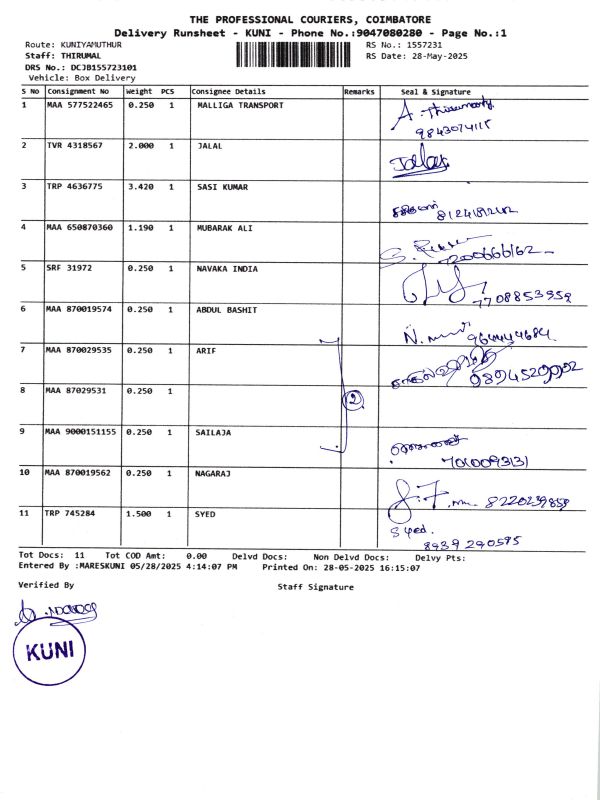 THE PROFESSIONAL COURIERS, COIMBATORE
Delivery Runsheet - KUNI - Phone No.:9047080280 - Page No.:1
Route: KUNIYAMUTHUR RS No.: 1557231
Staff: THIRUMAL RS Date: 28-May-2025
DRS No.: DCJB155723101
Vehicle: Box Delivery
S No Consignment No Weight PCS Consignee Details Remarks Seal & Signature
1 MAA 577522465 0.250 1 MALLIGA TRANSPORT A. Thirumoorthy
9843074115
2 TVR 4318567 2.000 1 JALAL Jalal
3 TRP 4636775 3.420 1 SASI KUMAR
4 MAA 650870360 1.190 1 MUBARAK ALI
7200666162
5 SRF 31972 0.250 1 NAVAKA INDIA
7708853559
6 MAA 870019574 0.250 1 ABDUL BASHIT
7 MAA 870029535 0.250 1 ARIF
9894529902
8 MAA 87029531 0.250 1 2
9 MAA 9000151155 0.250 1 SAILAJA
7010093131
10 MAA 870019562 0.250 1 NAGARAJ 8220239859
11 TRP 745284 1.500 1 SYED Syed.
8939290595
Tot Docs: 11 Tot COD Amt: 0.00 Delvd Docs: Non Delvd Docs: Delvy Pts:
Entered By :MARESKUNI 05/28/2025 4:14:07 PM Printed On: 28-05-2025 16:15:07
Verified By Staff Signature
KUNI